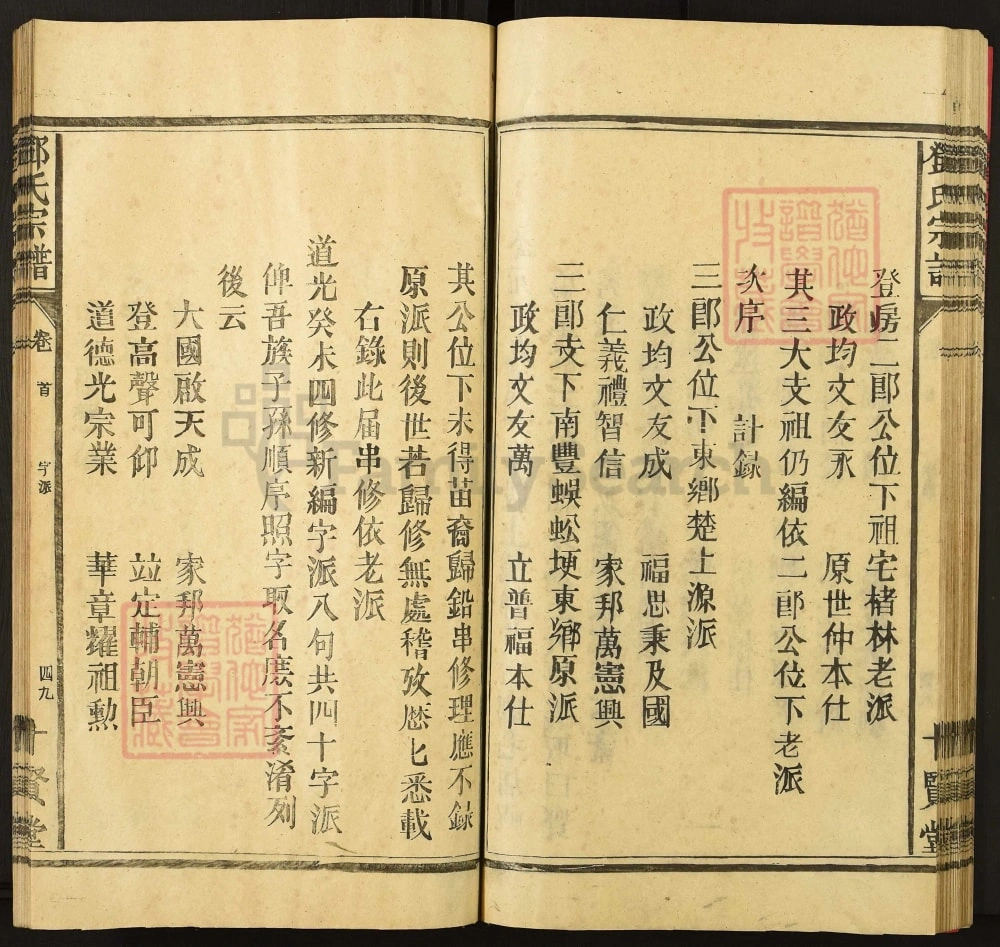 鄧氏宗譜
十賢堂
登房二郎公位下祖宅楮林老派
政均文友永 原世仲本仕
其三大支祖仍編依二郎公位下老派
次序 計錄
三郎公位下東鄉楚上源派
政均文友成 福思秉及國
仁義禮智信 家邦萬憲興
三郎支下南豐蜈蚣埂東鄉原派
政均文友萬 立普福本仕
其公位下未得苗裔歸鉛串修理應不錄
原派則後世若歸修無處稽攷歷匕悉載
右錄此届串修依老派
道光癸未四修新編字派八句共四十字派
俾吾族子孫順序照字取名庶不紊淆列
後云
大國啟天成 家邦萬憲興
登高聲可仰 竝定輔朝臣
道德光宗業 華章耀祖勳
鄧氏宗譜
卷首
字派
四九
十賢堂
FamilySearch